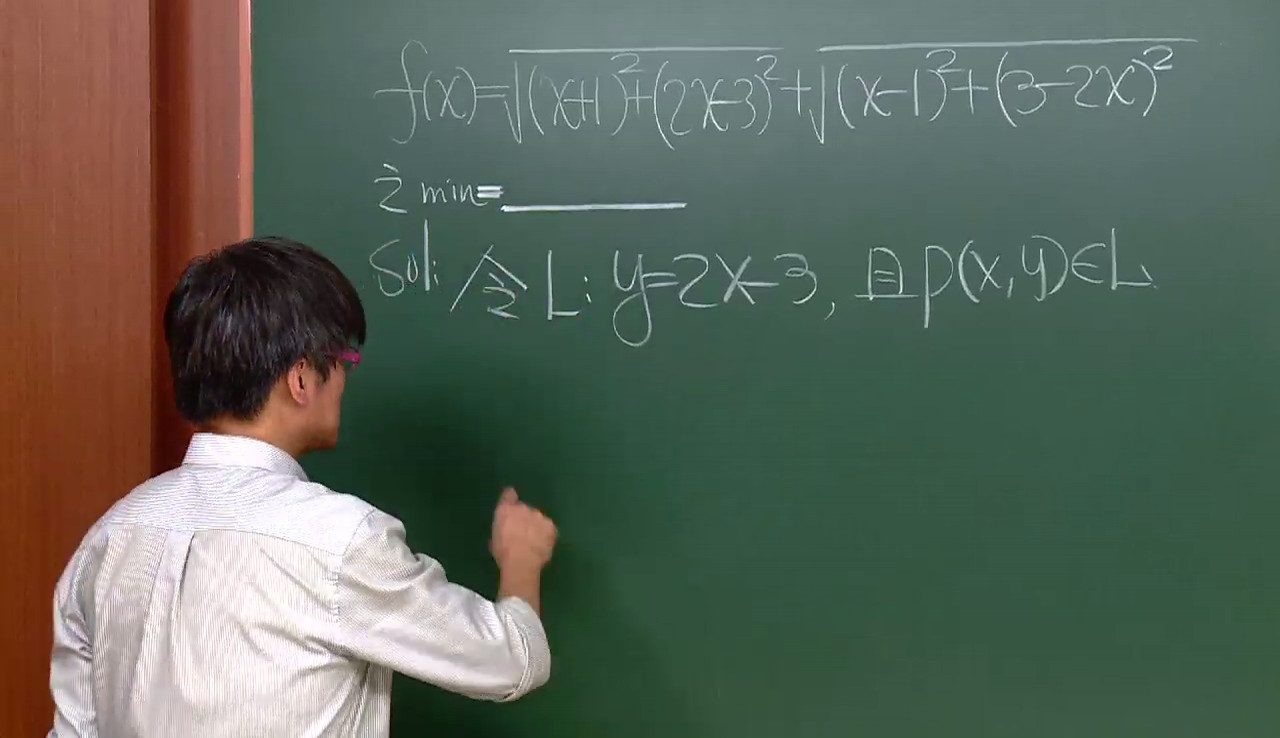 f(x)=√(x+1)²+(2x-3)²+√(x-1)²+(3-2x)²
之 min=
Sol: 令 L: y=2x-3, 且 P(x,y)∈L